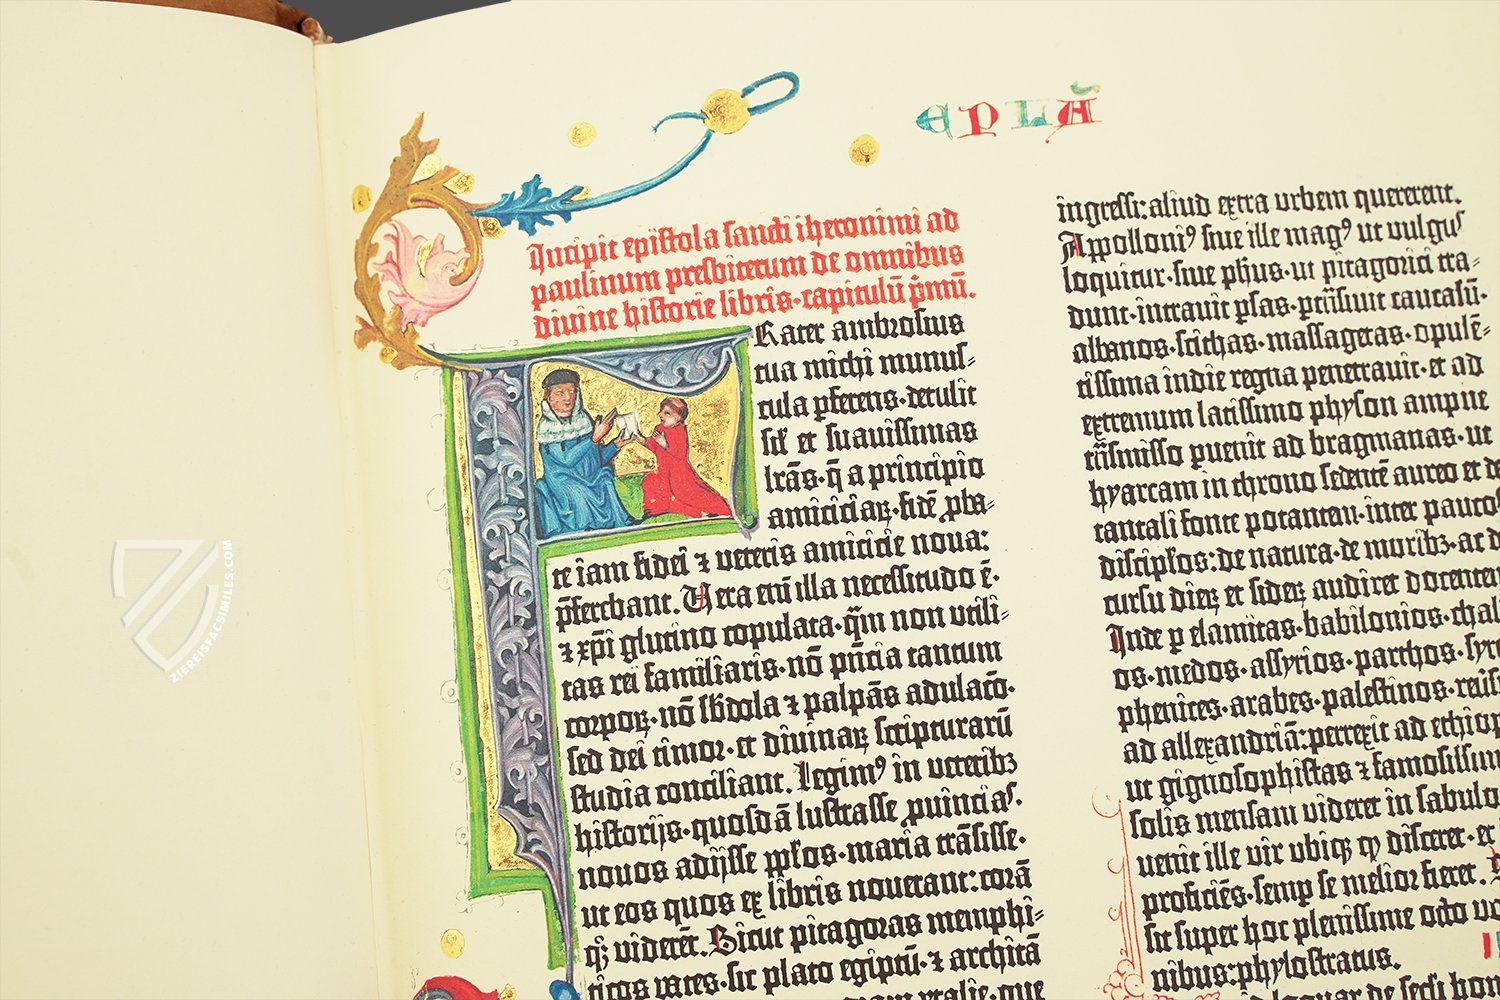 EPLĀ
Incipit epistola sancti iheronimi ad
paulinum presbiterum de omnibus
divine historie libris·capitulū p̄mū.
Frater ambrosius
tua michi munus-
cula pferens·detulit
sil̄ et suavissimas
lrās·q̄ a principio
amiciciaꝝ·fidē ꝓba-
te iam fidei ⁊ veteris amicicie nova:
p̄ferebant. Uera em̄ illa necessitudo ē·
⁊ xp̄i glutino copulata·q̄m non utili-
tas rei familiaris·nō pn̄cia tantum
corpoꝝ·nō sb̄dola ⁊ palpās adulaco·
sed dei timor·et divinaꝝ scripturarū
studia conciliant. Legimꝰ in veteribꝫ
historijs·quosdā lustrasse ꝓuincias·
novos adijsse pp̄los·maria trāsisse·
ut eos quos ex libris noverant: corā
qꝫ viderēt. Sicut pitagoras memphi-
ticos vates·sic plato egiptū·⁊ architā
ingressi: aliud extra urbem quererent.
Appolloniꝰ sive ille magꝰ ut vulgus
loquitur·sive ph̄us·ut pitagorici tra-
dunt·intravit ꝑsas·ptrāsivit caucasū·
albanos·scithas·massagetas·opulē-
tissima indie regna penetravit·et ad
extremum latissimo physon ampne
trāsmisso puenit ad bragmanas·ut
hyarcam in throno sedentē aureo et de
tantali fonte potantem·inter paucos
discipl̄os: de natura·de moribꝫ·ac d
cursu dieꝝ et sideꝝ audiret docentem
Inde p elamitas·babilonios·chal
os·medos·assyrios·parthos·syr
phenices·arabes·palestinos·
ad allexandriā: perrexit ad ethiop
ut gignosophistas ⁊ famosissim
solis mensam videret in sabulo
venit ille vir ubiqꝫ qꝫ disceret·et
proficiēs·semp se melior fieret.
sit super hoc plenissime octo vo
nibus: phylostratus.
ZIEREISFACSIMILES.COM